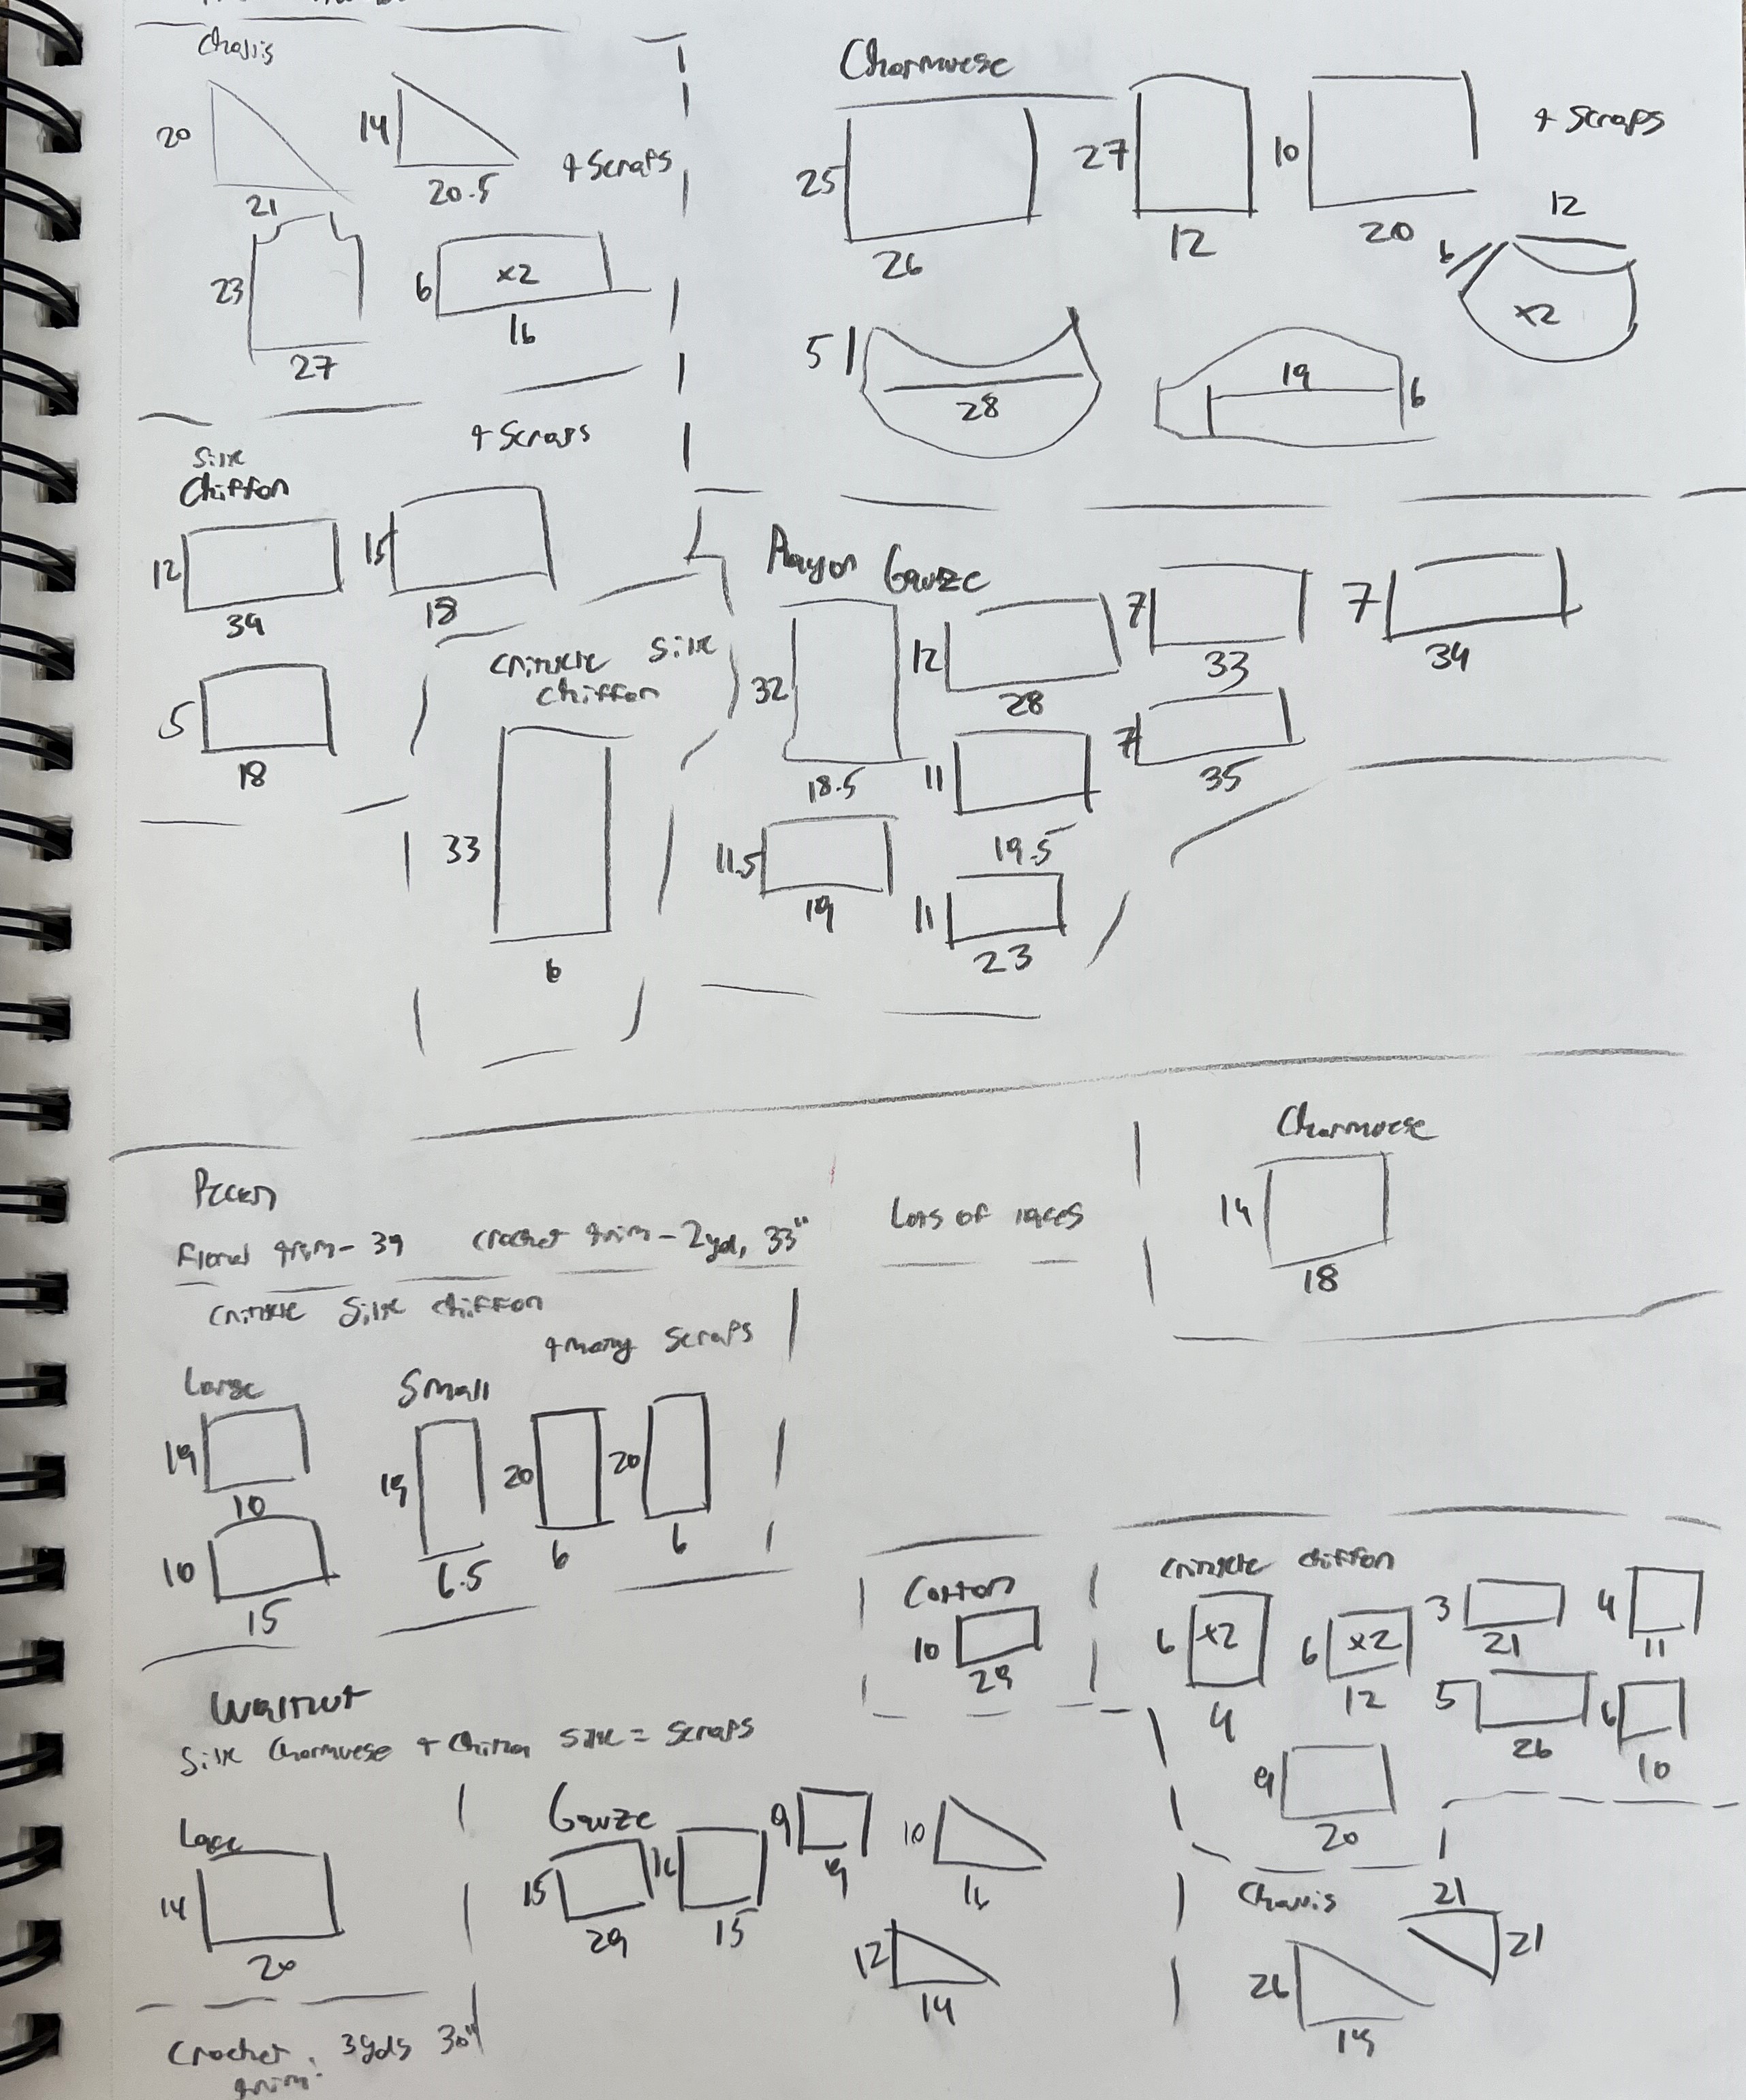 Challis
20
21
14
20.5
+ Scraps
23
27
6
x2
16
Charmuese
25
26
27
12
10
20
+ Scraps
12
6
x2
5
28
19
6
+ Scraps
Silk
Chiffon
12
39
15
18
5
18
Crinkle Silk
Chiffon
33
6
Rayon Gauze
32
18.5
12
28
7
33
7
34
11
19.5
7
35
11.5
19
11
23
Pecan
Floral trim - 39
crochet trim - 2yd, 33"
Lots of laces
Charmuese
14
18
Crinkle Silk Chiffon
+ many scraps
Large
19
10
10
15
Small
19
6.5
20
6
20
6
Cotton
10
29
Crinkle chiffon
6
x2
4
6
x2
12
3
21
4
11
5
26
6
10
9
20
Walnut
Silk Charmuese + China Silk = Scraps
Lace
14
20
Gauze
15
29
16
15
9
9
10
16
12
14
Challis
21
21
26
19
Crochet
trim:
3yds 30"